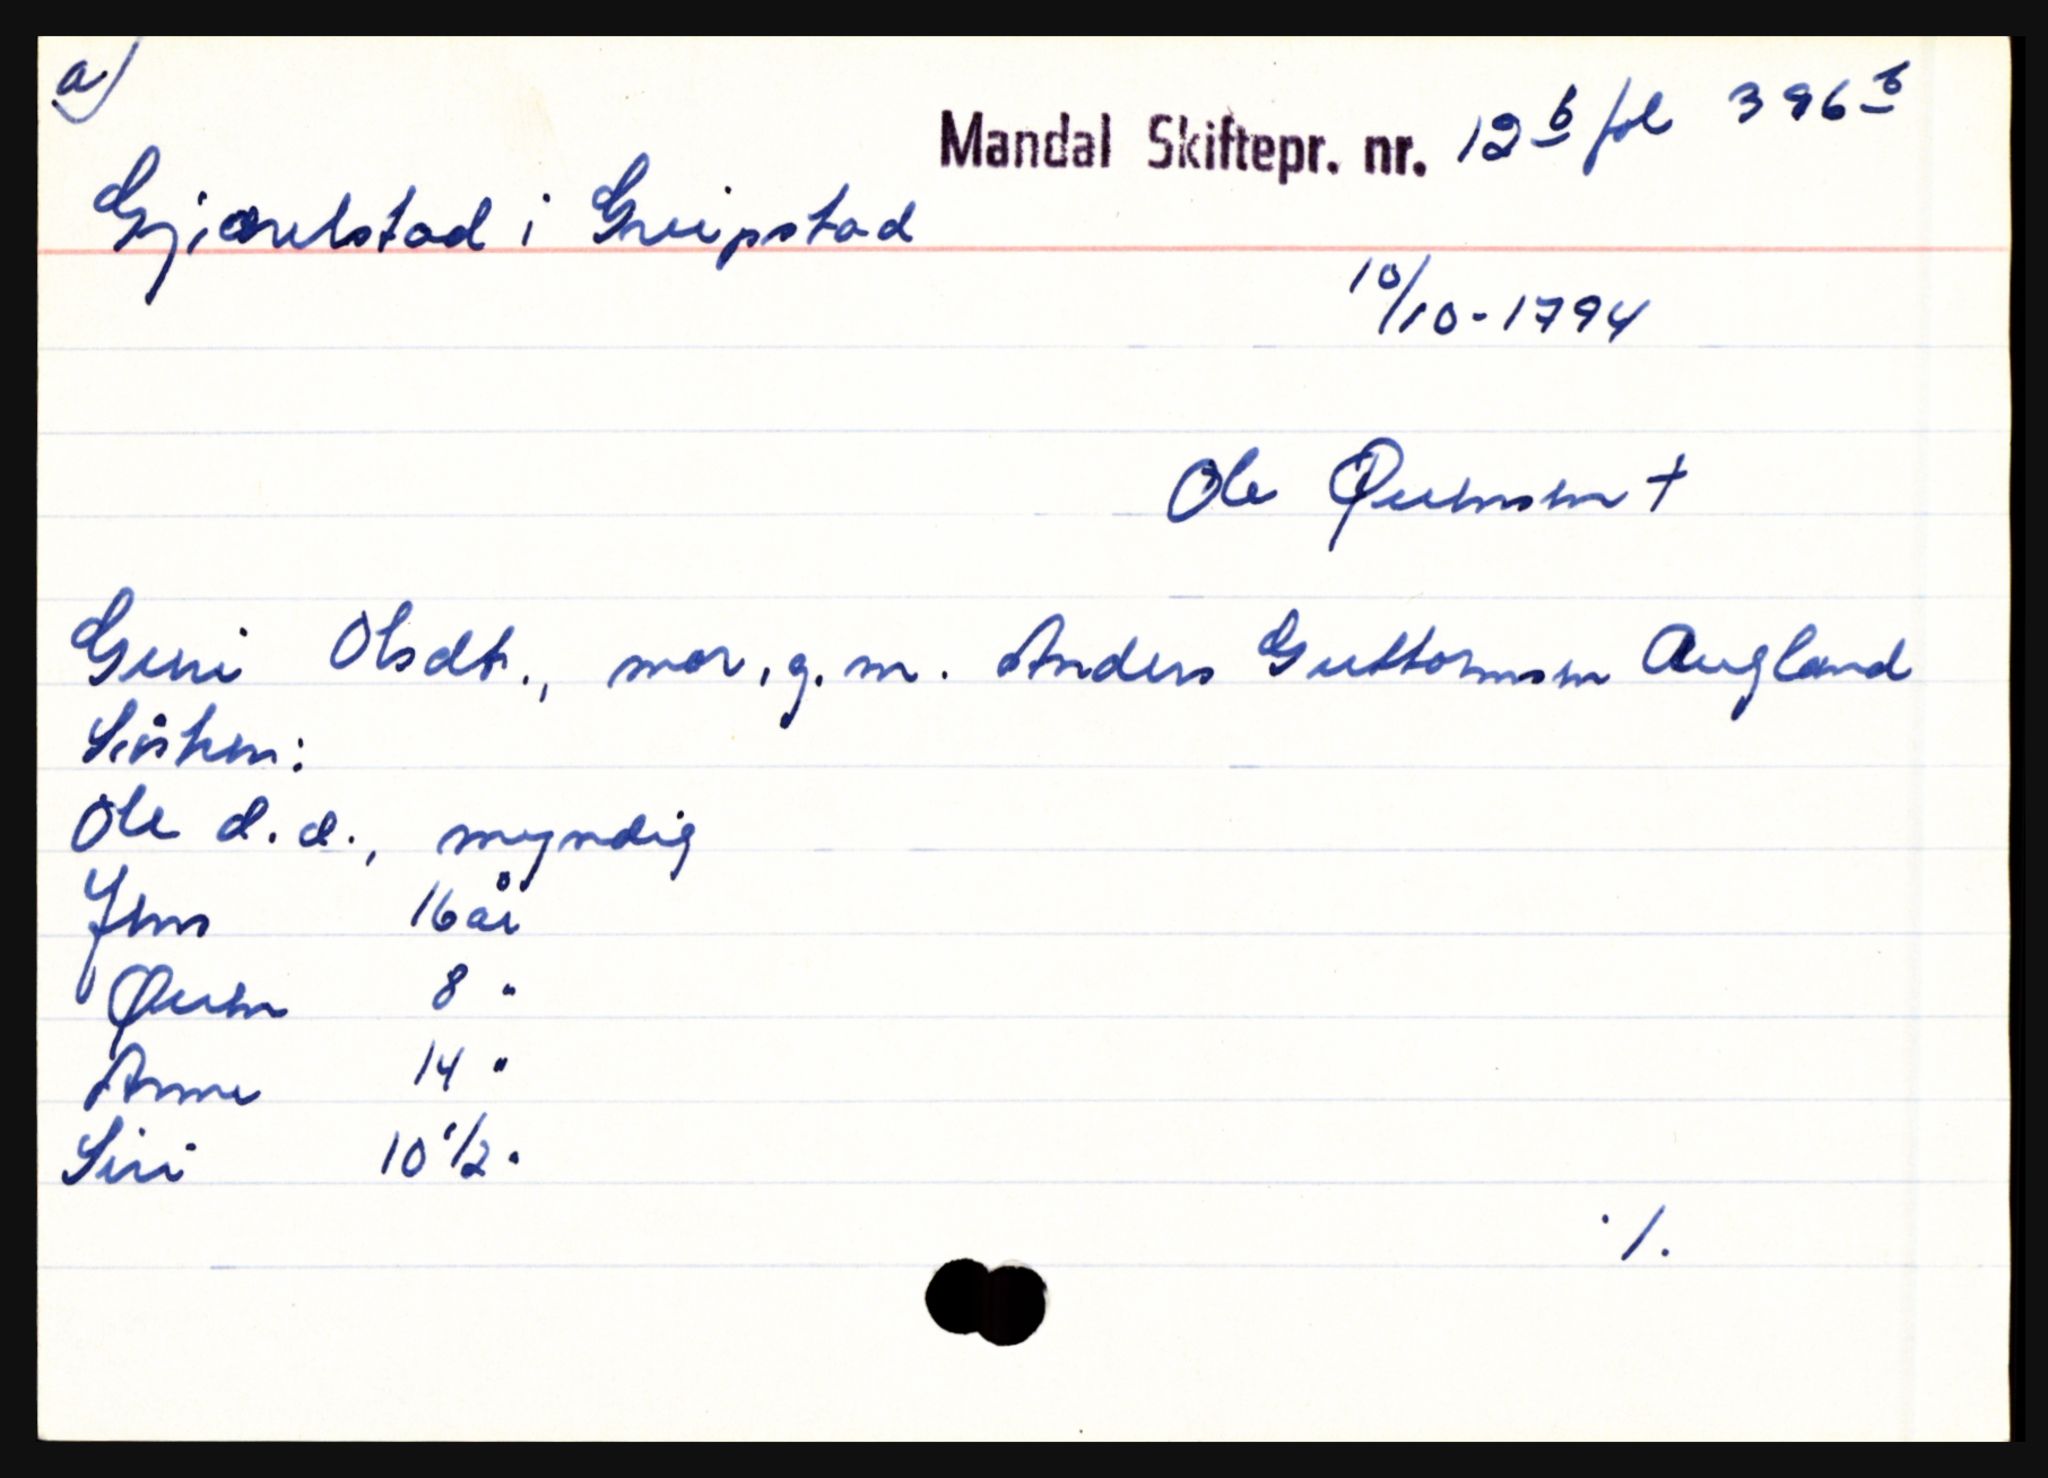 a)
Mandal Skiftepr. nr. 12 b fol 396 b
Gjærelstad i Greipstad
10/10-1794
Ole Øuensen +
Guri Olsdt., mor, g. m. Anders Guttormsen Augland
Søsken:
Ole d.e., myndig
Jens 16 år
Øuen 8 "
Anne 14 "
Siri 10 1/2 "
./.